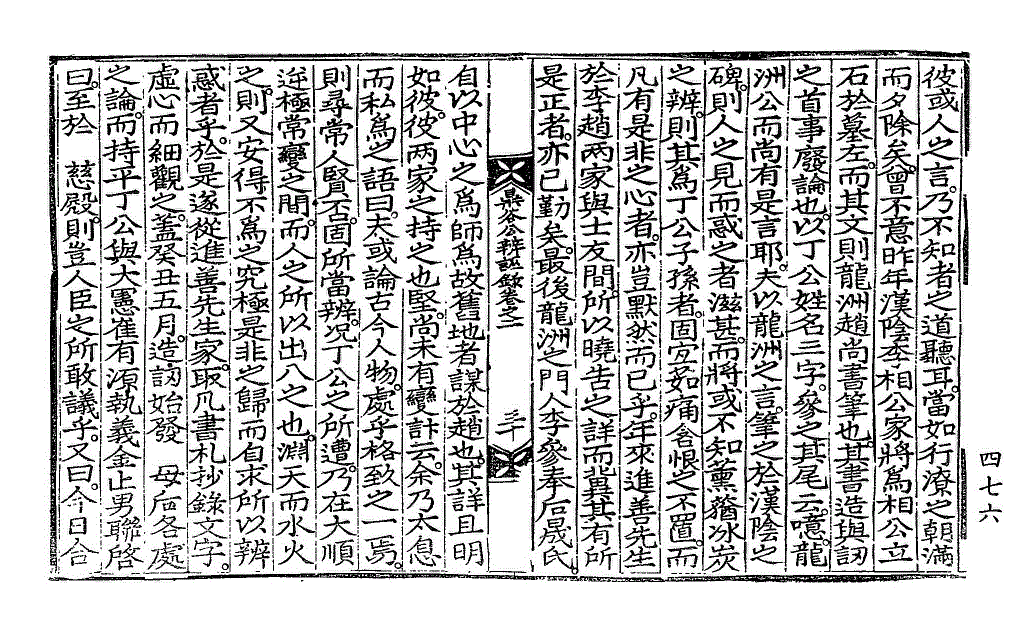 彼或人之言乃不知者之道聽耳當如行潦之朝滿
而夕除矣曾不意昨年漢陰李相公家將爲相公立
石於墓左而其文則龍洲趙尙書筆也其書造與訒
之首事廢論也以丁公姓名三字參之其尾云噫龍
洲公而尙有是言耶夫以龍洲之言筆之於漢陰之
碑則人之見而惑之者滋甚而將或不知薰蕕冰炭
之辨則其爲丁公子孫者固宜茹痛含恨之不置而
凡有是非之心者亦豈默然而已乎年來進善先生
於李趙两家與士友間所以曉告之詳而冀其有所
是正者亦已勤矣最後龍洲之門人李參奉后晟氏
愚谷公辨誣錄卷之二 三十
自以中心之爲師爲故舊地者謀於趙也其詳且明
如彼彼两家之持之也堅尙未有變計云余乃太息
而私爲之語曰夫或論古今人物處乎格致之一焉
則尋常人賢否固所當辨况丁公之所遭乃在大順
逆極常變之間而人之所以出入之也淵天而水火
之則又安得不爲之究極是非之歸而自求所以辨
惑者乎於是遂從進善先生家取凡書札抄錄文字
虛心而細觀之蓋癸丑五月造訒始發 母后各處
之論而持平丁公與大憲崔有源執義金止男聯啓
曰至於 慈殿則豈人臣之所敢議乎又曰今日合
四七六